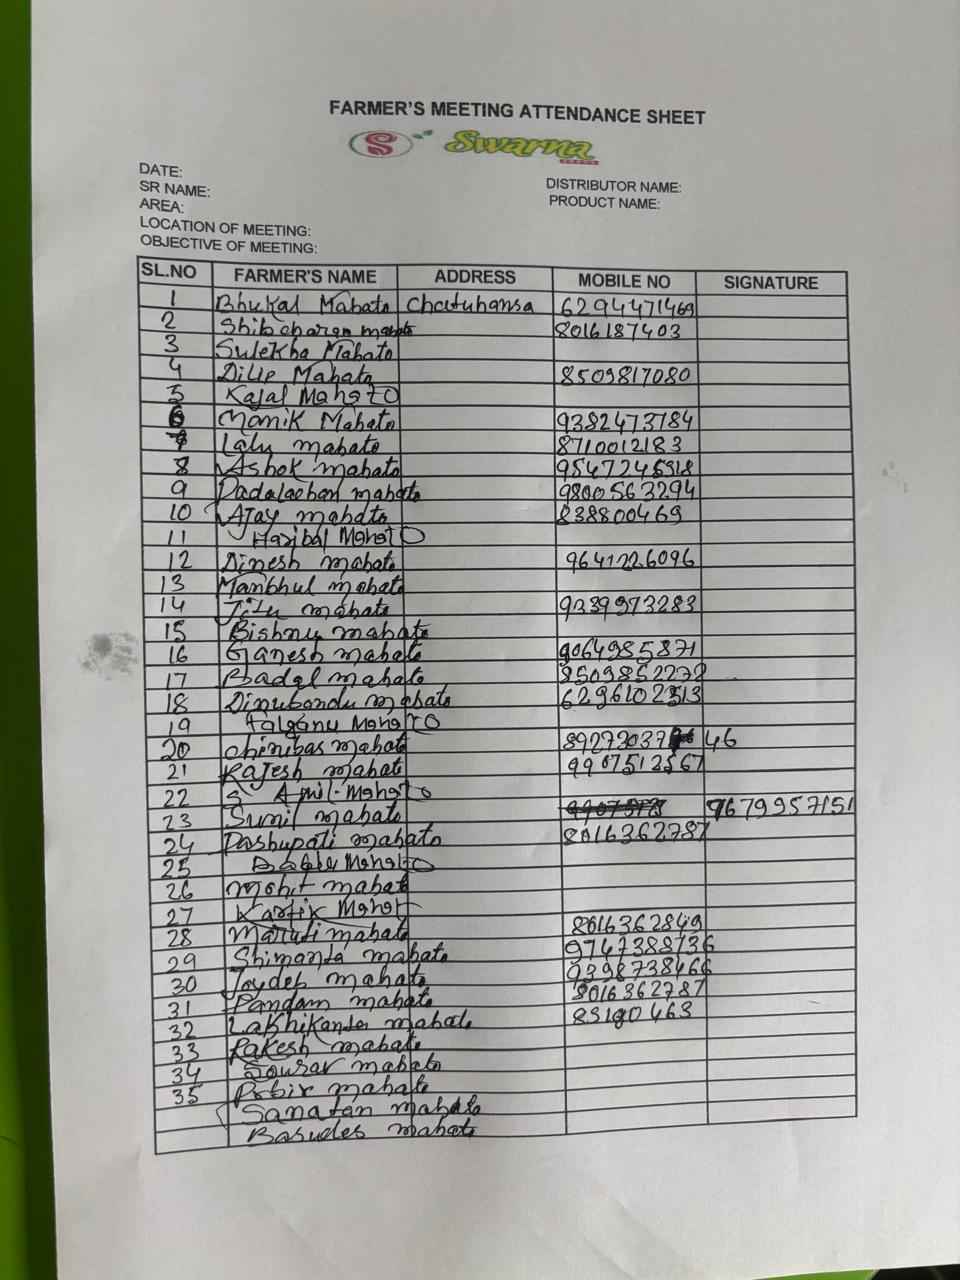 FARMER'S MEETING ATTENDANCE SHEET
S Swarna
DATE:
SR NAME:
AREA:
LOCATION OF MEETING:
OBJECTIVE OF MEETING:
DISTRIBUTOR NAME:
PRODUCT NAME:
SL.NO FARMER'S NAME ADDRESS MOBILE NO SIGNATURE
1 Bhukal Mahato Chatuhansa 6294471469
2 Shibcharan mahato 8016187403
3 Sulekha Mahato
4 Dilip Mahato 8509817080
5 Kajal Mahato
6 Manik Mahato 9382473784
7 Lalu mahato 8710012183
8 Ashok mahato
9 mahato 9800563294
10 Ajay mahato 838800469
11 Mahato
12 Dinesh mahato 9641226096
13 Manbhul mahato
14 Jitu mahato 9339973283
15 Bishnu mahato
16 Ganesh mahato 9064985871
17 Badal mahato 8509852272
18 Dinubandu mahato 6296102513
19 Mahato
20 Chinibas mahato 46
21 Rajesh mahato 9907512567
22 Mahato
23 Sunil mahato 9679957151
24 Pashupati mahato 8016362787
25 Mahato
26 Mohit mahato
27 Kartik Mahato
28 Maruti mahato 8016362849
29 Shimanta mahato 9747388736
30 Joydep mahato 9398738466
31 Pandam mahato 8016362787
32 Lakhikanta mahato
33 Rakesh mahato
34 Sourav mahato
35 Probir mahato
Sanatan mahato
Basudeb mahato